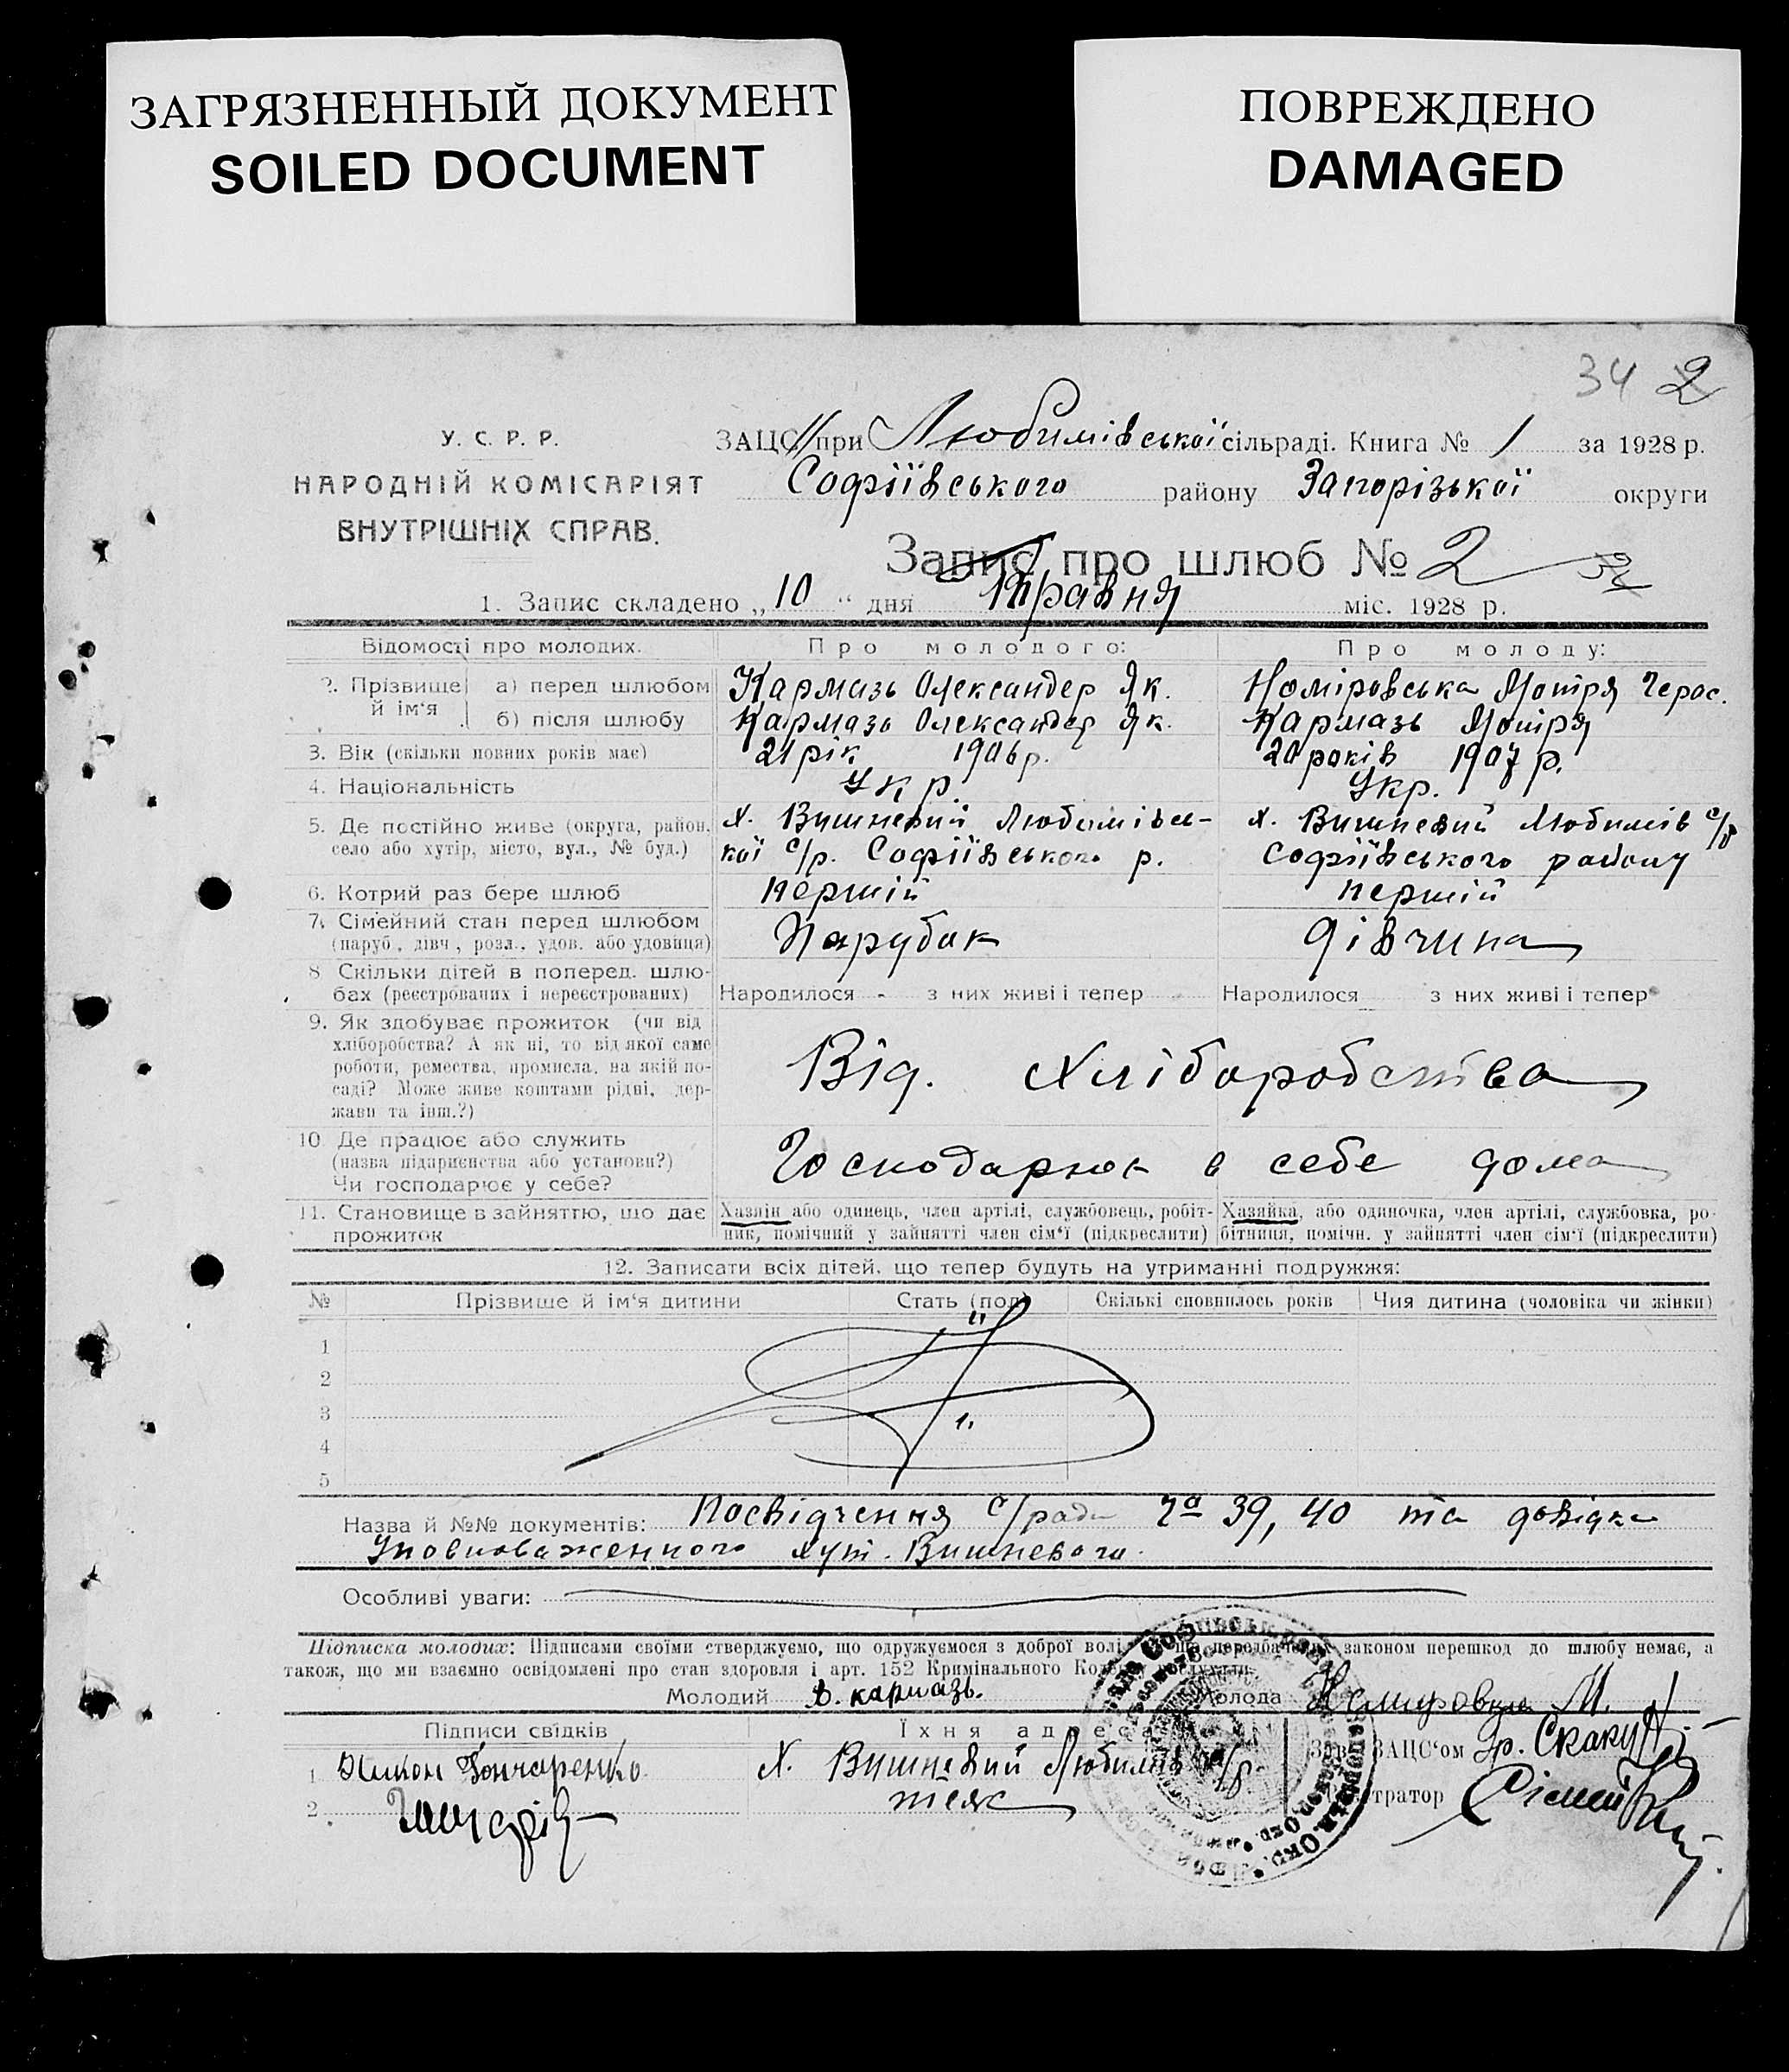 ЗАГРЯЗНЕННЫЙ ДОКУМЕНТ
SOILED DOCUMENT
ПОВРЕЖДЕНО
DAMAGED
34 2
У. С. Р. Р.
НАРОДНІЙ КОМІСАРІЯТ
ВНУТРІШНІХ СПРАВ.
ЗАЦС при Любимівської сільраді. Книга № 1 за 1928 р.
Софіївського району Запорізької округи
Запис про шлюб № 2
1. Запис складено „10“ дня Травня міс. 1928 р.
Відомості про молодих. Про молодого: Про молоду:
2. Прізвище й ім'я а) перед шлюбом Кармазь Олександер Як. Номіровська Мотря Герас.
б) після шлюбу Кармазь Олександер Як. Кармазь Мотря
3. Вік (скільки повних років має) 21 рік 1906 р. 20 років 1907 р.
4. Національність Укр. Укр.
5. Де постійно живе (округа, район, х. Вишневий Любимівсь- х. Вишневий Любимів с/р
село або хутір, місто, вул., № буд.) кої с/р. Софіївського р. Софіївського району
6. Котрий раз бере шлюб першій першій
7. Сімейний стан перед шлюбом
(паруб., дівч., розл., удов. або удовиця) Парубок Дівчина
8 Скільки дітей в поперед. шлю-
бах (реєстрованих і нереєстрованих) Народилося - з них живі і тепер Народилося з них живі і тепер
9. Як здобуває прожиток (чи від
хліборобства? А як ні, то від якої саме
роботи, ремества, промисла, на якій по-
саді? Може живе коштами рідні, дер-
жави та інш.?)
Від. хліборобства
10 Де працює або служить
(назва підприємства або установи?)
Чи господарює у себе?
Господарює в себе дома
11. Становище в зайняттю, що дає Хазяїн або одинець, член артілі, службовець, робіт- Хазяйка, або одиночка, член артілі, службовка, ро-
прожиток ник, помічний у зайнятті член сім'ї (підкреслити) бітниця, помічн. у зайнятті член сім'ї (підкреслити)
12. Записати всіх дітей, що тепер будуть на утриманні подружжя:
№ Прізвище й ім'я дитини Стать (пол) Скількі сповнилось років Чия дитина (чоловіка чи жінки)
1
2
3
4
5
Назва й №№ документів: Посвідчення с/ради 39, 40 та довідка
Уповноваженного хут. Вишневого.
Особливі уваги:
Підписка молодих: Підписами своїми стверджуємо, що одружуємося з доброї волі законом перешкод до шлюбу немає, а
також, що ми взаємно освідомлені про стан здоровля і арт. 152 Кримінального
Молодий в. кармазь. Молода М.
Підписи свідків Їхня адреса ЗАЦС'ом Гр. Скакун
1 Гончаренко х. Вишневий Любимів с/р.
2 теж